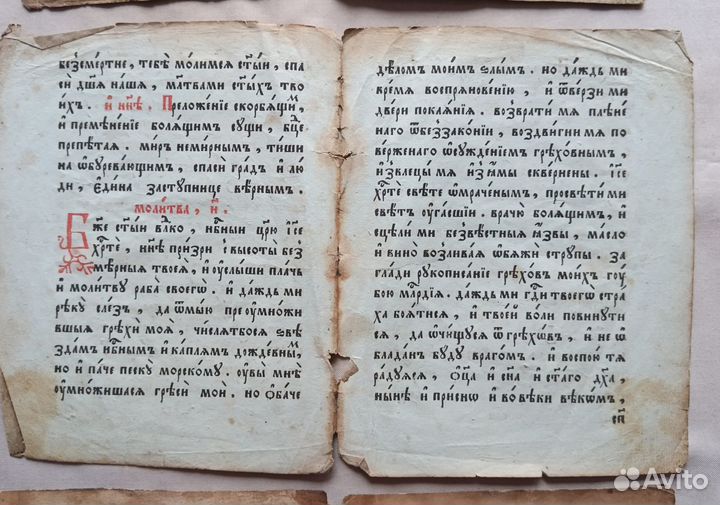 безсме́ртне, тебѣ̀ мо́лимсѧ ст҃ы́и, спа
сѝ дш҃а на́ша, мл҃твами ст҃ы́хъ тво
и́хъ. и҆ ны́нѣ, Преложе́нїе скорбѧ́щимъ,
и҆ премѣне́нїе болѧ́щимъ сущи, бц҃е
препѣ́таѧ. миръ неми́рнымъ, тиши
на ѡ҆буреваю́щимъ, спасѝ гра́дъ и҆ лю́
ди, є҆ди́на засту́пнице вѣ́рнымъ.
моли́тва, и҃.
Бж҃е ст҃ы́и влⷣко, нбⷭ҇ныи цр҃ю і҆с҃е
хрⷭ҇тѐ, ны́нѣ при́зри с высоты̀ без
мѣ́рныѧ твоеѧ̀, и҆ ѹ҆слы́ши пла́чь
и҆ моли́тву раба̀ своегѡ̀. и҆ да́ждь ми
рѣ́ку сле́зъ, да ѿмы́ю преѹ҆мно́жи
вшыѧ грѣхѝ моѧ̀, числѧ́тбосѧ ѕвѣ
зда́мъ нбⷭ҇нымъ и҆ ка́плѧмъ дожде́внымъ,
но и҆ па́че песку̀ морско́му. ѹ҆вы̀ мнѣ̀
ѹ҆мно́жишасѧ грѣсѝ моѝ. но ѻ҆ба́че
дѣ́ломъ мои́мъ ѕлы́мъ. но да́ждь ми
вре́мѧ воспрѧнове́нїю, и҆ ѿве́рзи ми
две́ри покаѧ́нїѧ. возврати́ мѧ плѣне́
наго ѿ беззако́нїи, воздви́гни мѧ по
ве́рженаго ѡ҆сужде́нїемъ грѣхо́внымъ,
и҆ и҆звлецы́ мѧ и҆з ꙗ҆́мы скве́рнены. і҆с҃е
хрⷭ҇тѐ свѣ́те ѡ҆мраче́нымъ, просвѣтѝ ми
свѣ́тъ ѹ҆га́сшїи. врачю̀ болѧ́щимъ, и҆
и҆сцелѝ ми безвѣ́стныѧ ꙗ҆́звы, ма́сло
и҆ вино̀ возлива́ѧ ѡ҆бѧжѝ стру́пы. за
гла́ди рукописа́нїе грѣхо́въ мои́хъ гоу́
бою млⷭ҇рдїѧ. да́ждь ми гдⷭ҇и твоегѡ̀ стра́
ха боѧ́тисѧ, и҆ твое́й во́ли повину́ти
сѧ, да ѡ҆чи́щусѧ ѿ грѣхѡ́въ, и҆ не ѡ҆
блада́нъ бу́ду враго́мъ. и҆ воспою́ тѧ
ра́дуѧсѧ, ѻ҆ц҃а̀ и҆ сн҃а и҆ ст҃а́го дх҃а,
ны́нѣ и҆ при́снѡ и҆ во вѣ́ки вѣкѡ́мъ,
Avito